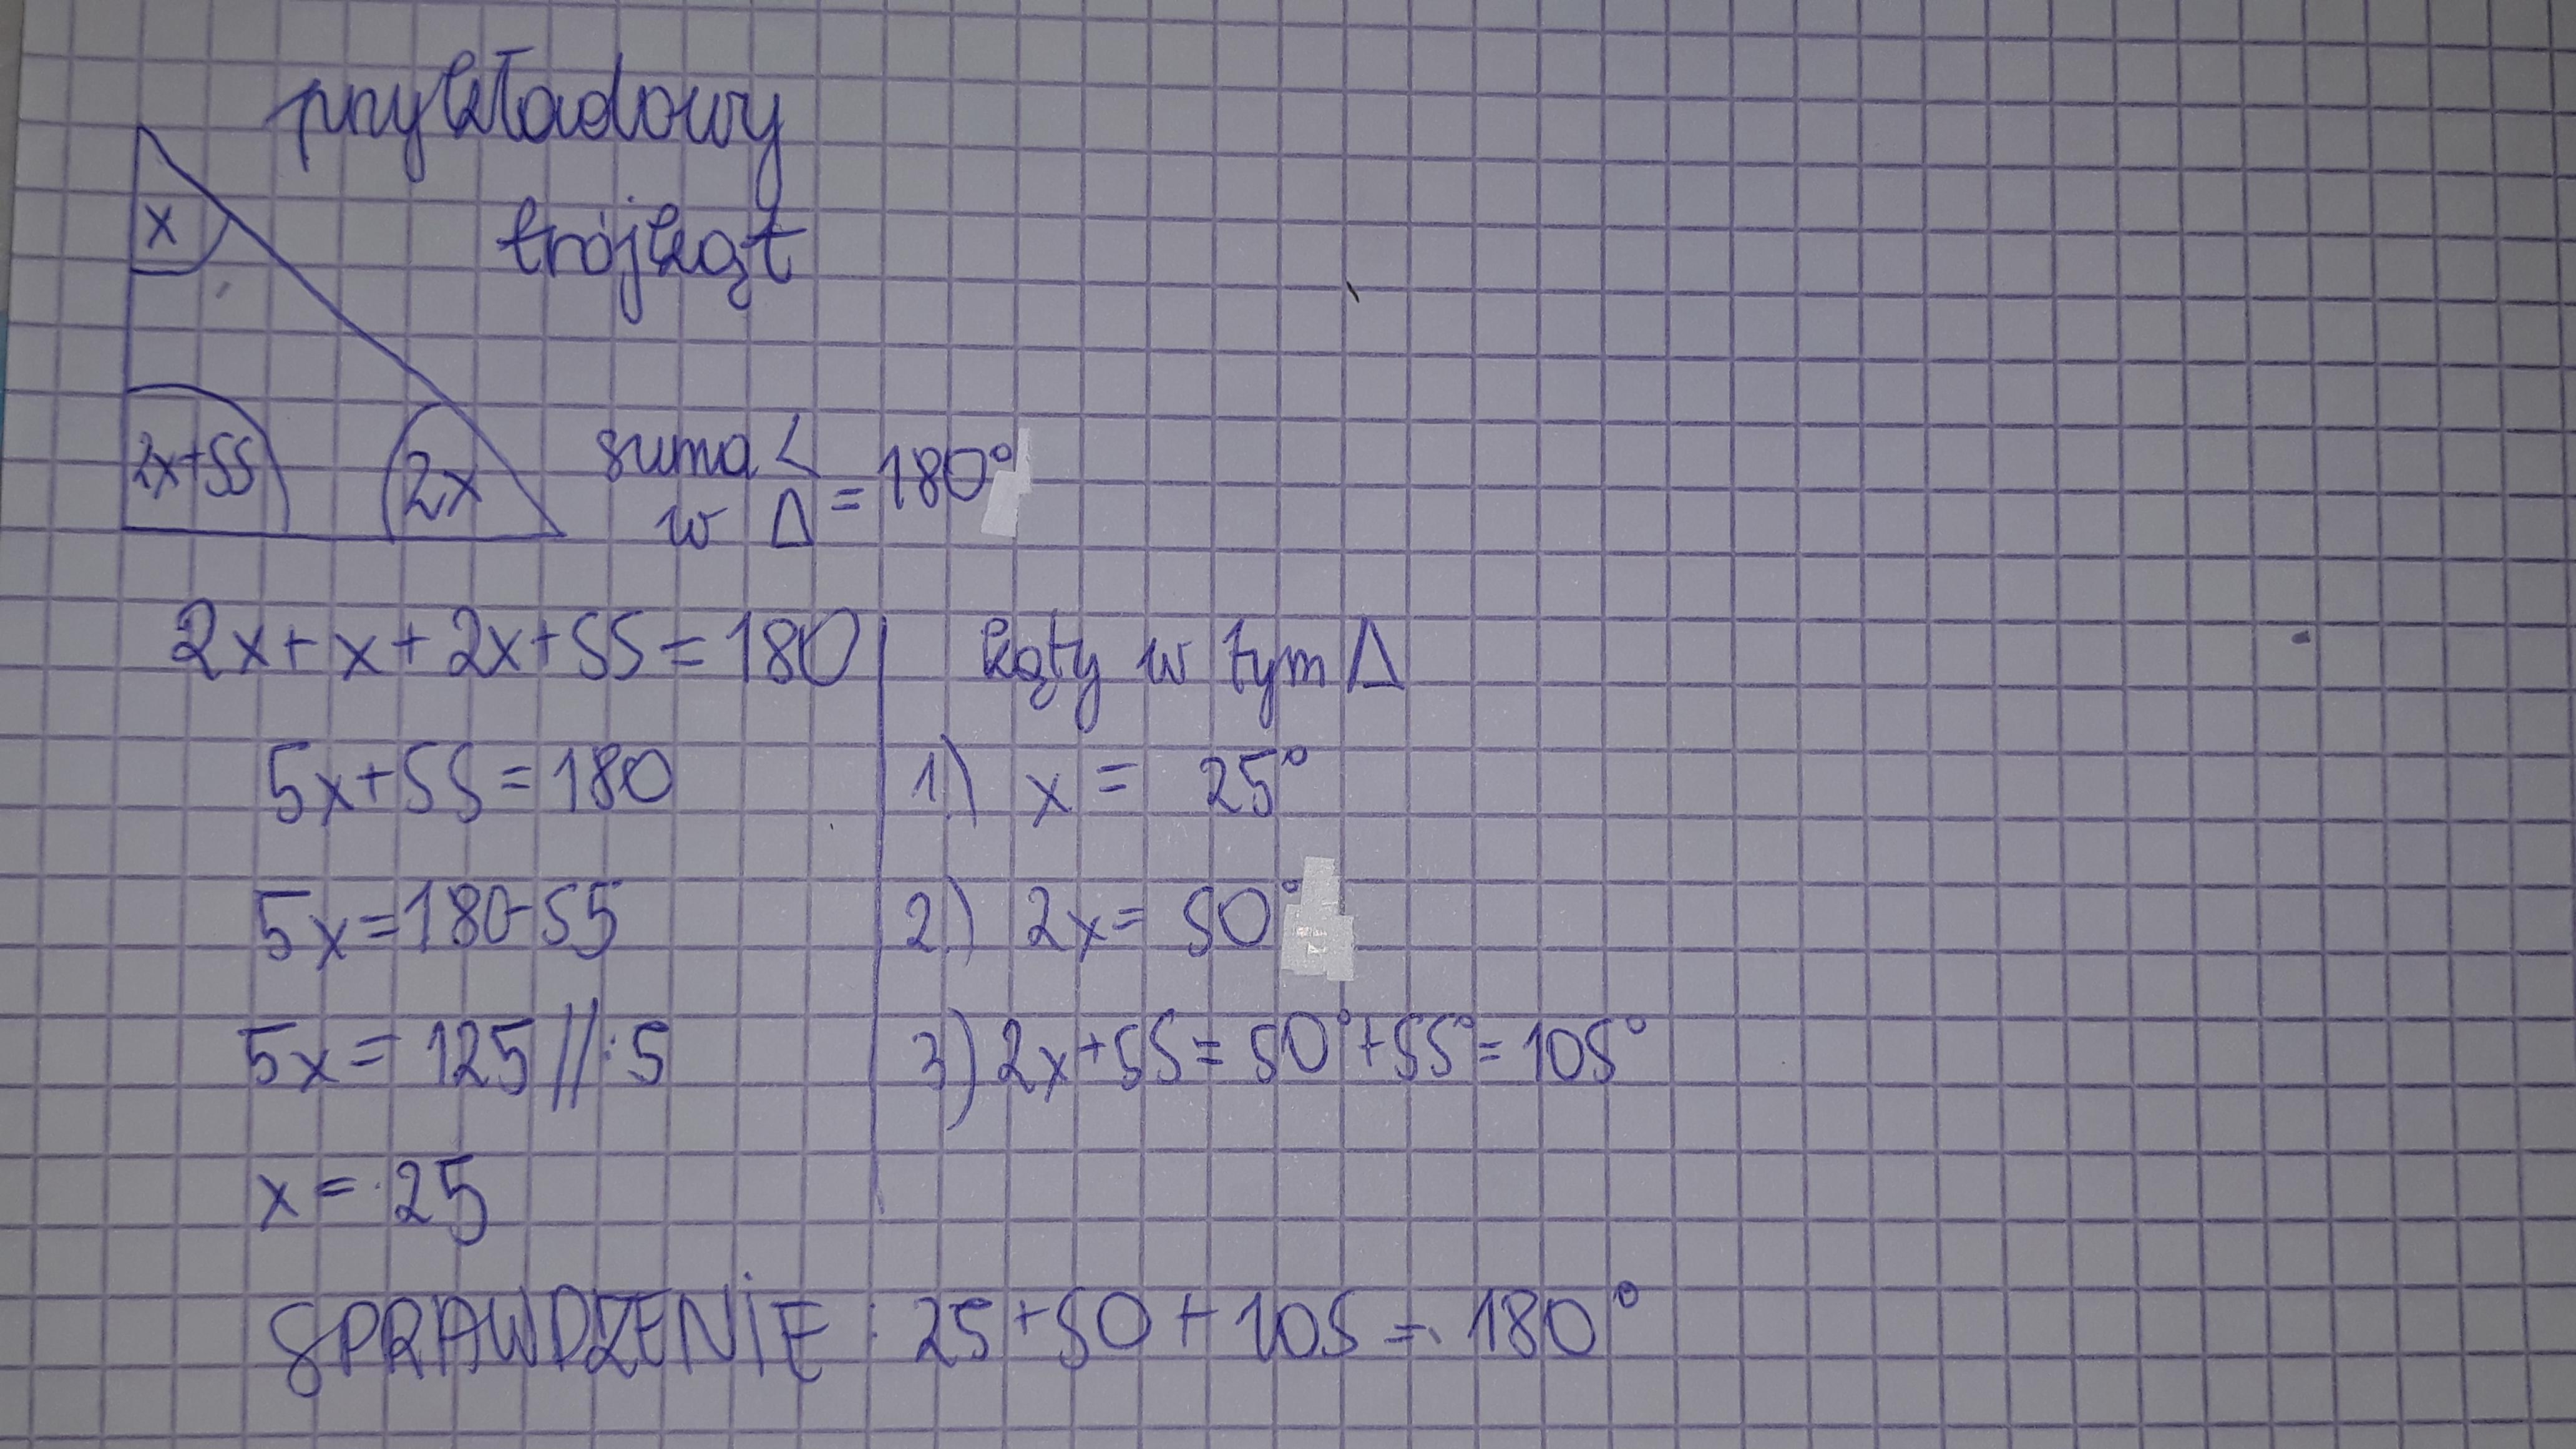 przykładowy
trójkąt
x
2x+55
2x
suma ∢
w Δ = 180°
2x + x + 2x + 55 = 180
5x+55 = 180
5x = 180-55
5x = 125 //:5
x = 25
kąty w tym Δ
1) x = 25°
2) 2x = 50°
3) 2x+55 = 50°+55° = 105°
SPRAWDZENIE : 25 + 50 + 105 = 180°